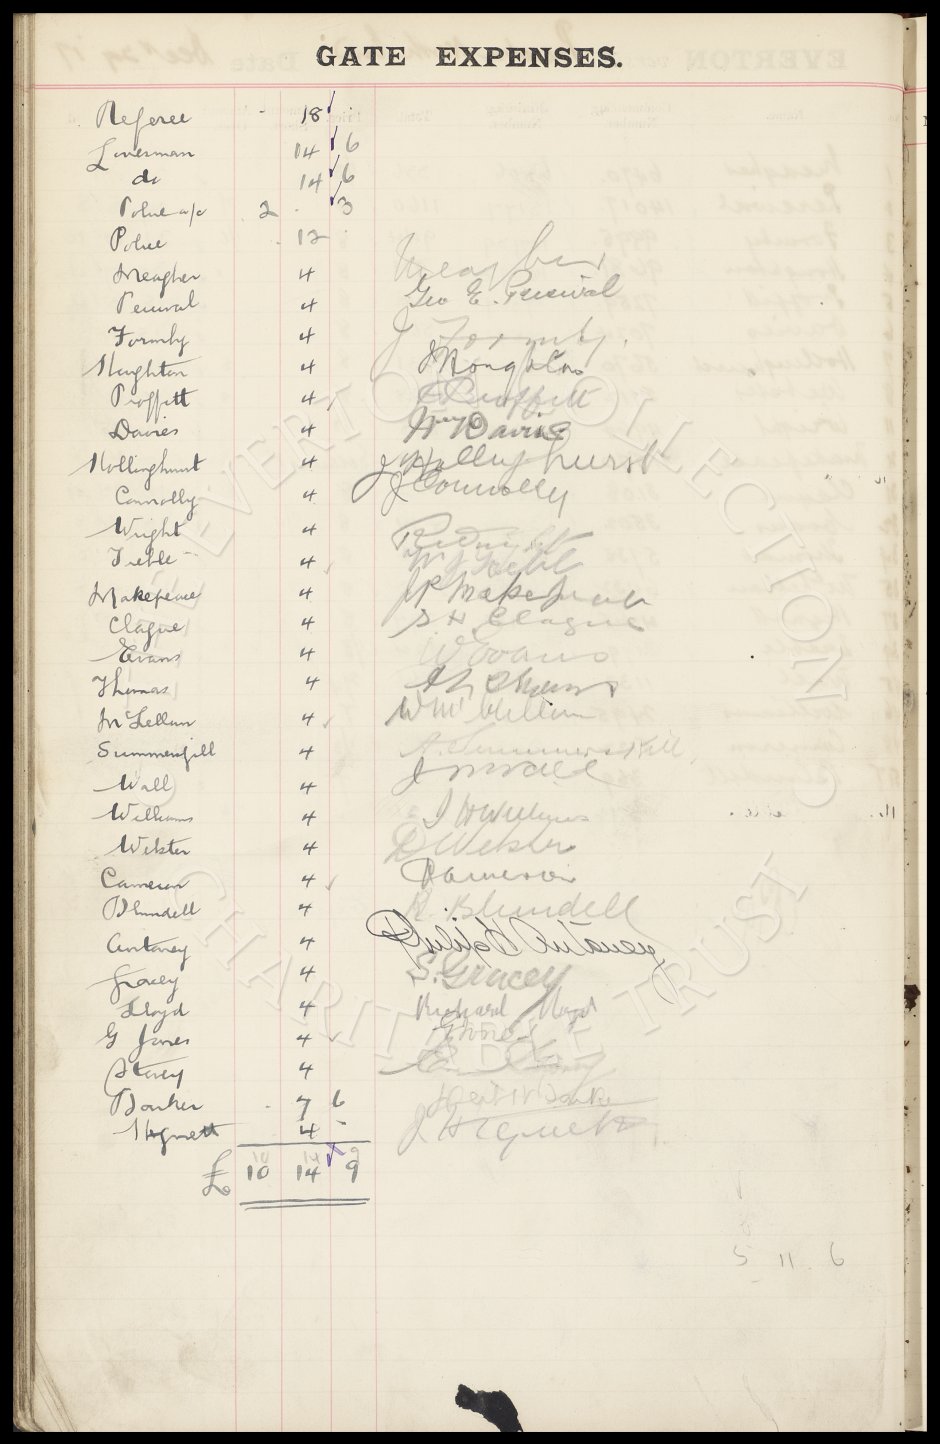 GATE EXPENSES.
Referee - 18 -
Linesman 14 6
do 14 6
Police a/c 2 - 3
Police - 12 -
Meagher 4 Meagher
Percival 4 Geo E. Percival
Formby 4 J Formby.
Houghton 4 J Houghton
Proffitt 4 Proffitt
Davies 4 Wm Davies
Hollinghurst 4 J Hollinghurst
Connolly 4 J Connolly
Wright 4
Treble 4
Makepeace 4 J R Makepeace
Clague 4 S H Clague
Evans 4 W Evans
Thomas 4 Thomas
McLellan 4 W McLellan
Summersgill 4 Summersgill
Wall 4 J Wall
Williams 4 J H Williams
Webster 4 D Webster
Cameron 4 Cameron
Blundell 4 R. Blundell
Antoney 4 Philip H Antoney
Gracey 4 S. Gracey
Lloyd 4 Richard Lloyd
G Jones 4 G Jones
Storey 4
Barker - 7 6
Hignett 4 - J Hignett
£ 10 14 9
5 11 6
EVERTON COLLECTION
CHARITABLE TRUST